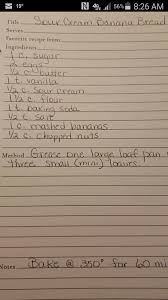 19° 56% 8:26 AM
Title Sour Cream Banana Bread
Serves
Favorite recipe from
Ingredients
1 c. sugar
2 eggs
1/2 c. butter
1 t. vanilla
1/2 c. sour cream
1 1/2 c. flour
1 t. baking soda
1/2 t. salt
1 c. mashed bananas
1/2 c. chopped nuts
Method Grease one large loaf pan
three small (mini) loaves.
Notes Bake @ 350° for 60 mi